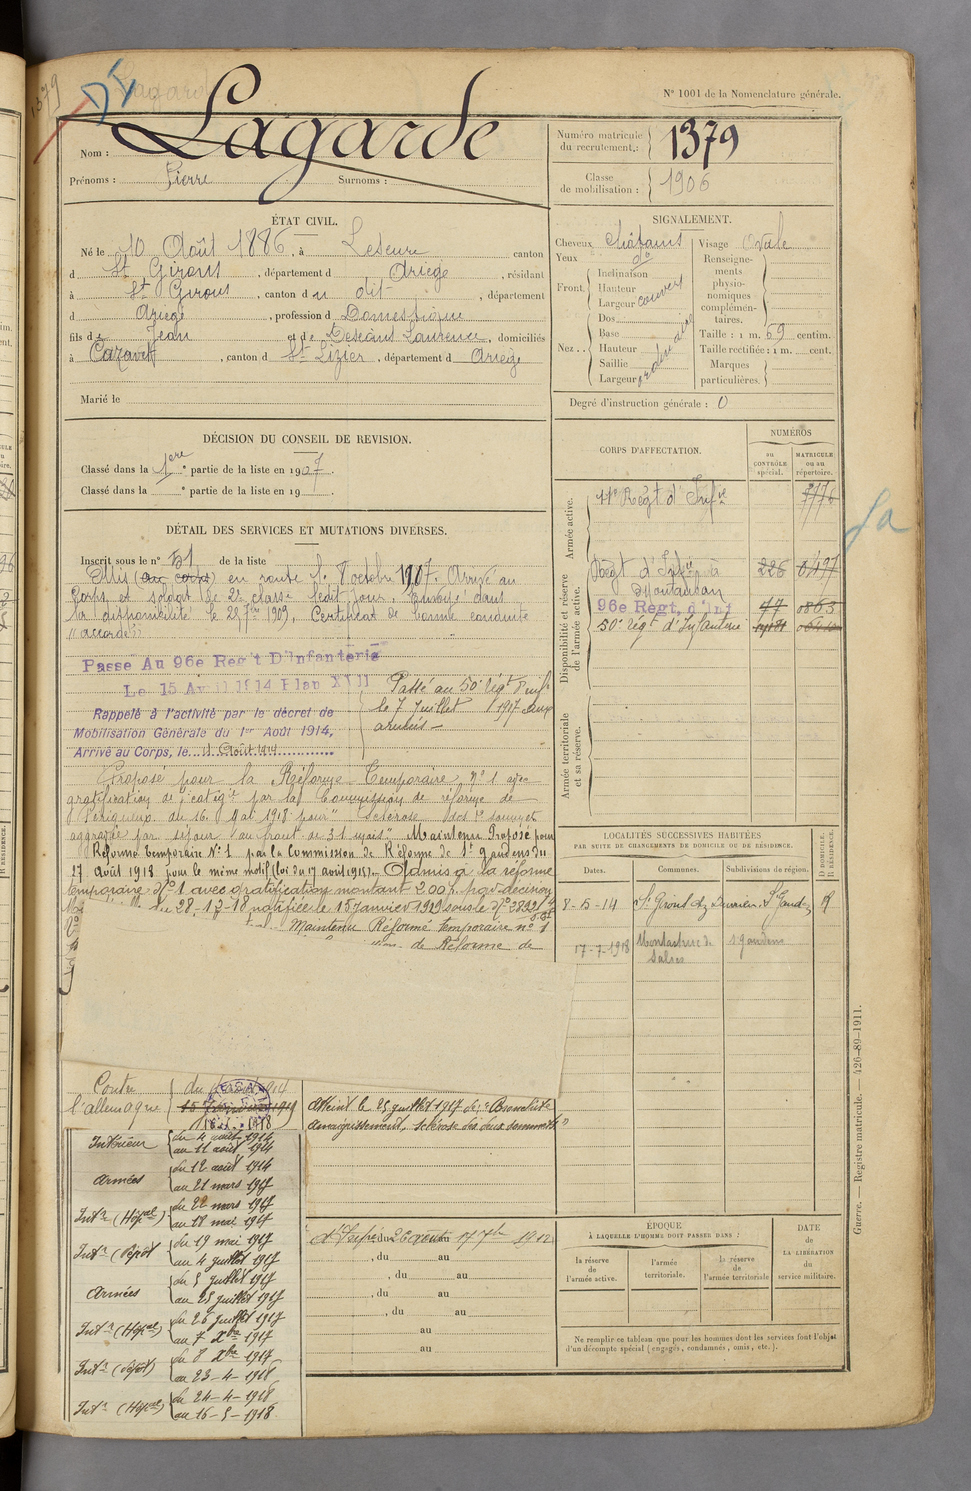 N° 1001 de la Nomenclature générale.
1379
Lagarde
Nom :
Prénoms : Pierre Surnoms :
Numéro matricule du recrutement : 1379
Classe de mobilisation : 1906
ÉTAT CIVIL.
Né le 10 Août 1886, à canton
d St Girons, département d Ariège, résidant
à St Girons, canton d u dit, département
d Ariège, profession d Domestique
fils de Jean et de Laurence, domiciliés
à Cazavet, canton d St Lizier, département d Ariège
Marié le
SIGNALEMENT.
Cheveux châtains
Yeux do
Front. Inclinaison
Hauteur
Largeur couvert
Nez.. Dos
Base
Hauteur
Saillie
Largeur
Visage Ovale
Renseignements physionomiques complémentaires.
Taille : 1 m. 69 centim.
Taille rectifiée : 1 m. cent.
Marques particulières.
Degré d'instruction générale : 0
DÉCISION DU CONSEIL DE REVISION.
Classé dans la 1ère partie de la liste en 1907.
Classé dans la e partie de la liste en 19
DÉTAIL DES SERVICES ET MUTATIONS DIVERSES.
Inscrit sous le n° 51 de la liste
(aux corps) en route le 8 octobre 1907. Arrivé au
Corps et soldat de 2e classe ledit jour. Envoyé dans
la disponibilité le 25 7bre 1909, Certificat de bonne conduite
"accordé"
Passe Au 96e Reg't D'Infanterie
Le 15 Avril 1914 Plan XVII
Rappelé à l'activité par le décret de
Mobilisation Générale du 1er Août 1914,
Arrivé au Corps, le 11 Août 1914
Passé au 50e Régt d'Inf.
le 7 Juillet 1917 aux
armées —
Proposé pour la Réforme Temporaire n° 1 avec
gratification de catégie par la Commission de réforme de
Périgueux du 16 Mai 1918 pour "Sclérose des 2 sommets
aggravée par séjour au front de 31 mois" Maintenu Proposé pour
Réforme temporaire N° 1 par la Commission de Réforme de St gaudens du
27 Août 1918 pour le même motif (loi du 17 août 1915). Admis à la réforme
temporaire N° 1 avec gratification montant 200 f. par décision
du 28-12-18 notifiée le 15 Janvier 1919 sous le N° 2892
Maintenu Réformé temporaire n° 1
de Réforme de
CORPS D'AFFECTATION.
NUMÉROS
au CONTRÔLE spécial.
MATRICULE ou au répertoire.
Armée active.
Régt d'Infie
Disponibilité et réserve de l'armée active.
Regt d'Infie à Montauban 226
96e Regt, d'Inf 77 0863
50e régt d'Infanterie
Armée territoriale et sa réserve.
LOCALITÉS SUCCESSIVES HABITÉES
PAR SUITE DE CHANGEMENTS DE DOMICILE OU DE RÉSIDENCE.
Dates. Communes. Subdivisions de région. D DOMICILE. R RÉSIDENCE.
8-5-14 St Girons St Gaudens R
17-7-1918 Montastruc de Salies St gaudens
Contre l'allemagne du 4 août 1914
Intérieur du 4 août 1914
au 11 août 1914
Armées du 12 août 1914
au 21 mars 1917
Intr (Hôpal) du 22 mars 1917
au 18 mai 1917
Intr (Dépôt) du 19 mai 1917
au 4 juillet 1917
Armées du 5 juillet 1917
au 25 juillet 1917
Intr (Hôpal) du 26 juillet 1917
au 7 Xbre 1917
Intr (dépôt) du 8 Xbre 1917
au 23-4-1918
Intr (Hôpal) du 24-4-1918
au 16-5-1918
Atteint le 25 juillet 1917 de, "Bronchite
amaigrissement, sclérose des deux sommets"
du 26 août au 17 7bre 1912
, du au
, du au
, du au
, du au
au
au
ÉPOQUE
À LAQUELLE L'HOMME DOIT PASSER DANS :
la réserve de l'armée active.
l'armée territoriale.
la réserve de l'armée territoriale
DATE de LA LIBÉRATION du service militaire.
Ne remplir ce tableau que pour les hommes dont les services font l'objet
d'un décompte spécial (engagés, condamnés, omis, etc.).
Guerre. — Registre matricule. — 426-89-1911.